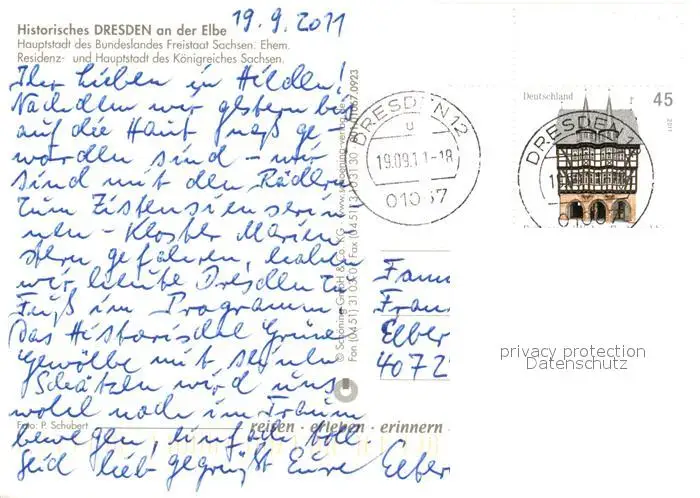 19.9.2011
Historisches DRESDEN an der Elbe
Hauptstadt des Bundeslandes Freistaat Sachsen. Ehem.
Residenz- und Hauptstadt des Königreiches Sachsen.
Ihr Lieben in Hilden!
Nachdem wir gestern bis
auf die Haut naß ge-
worden sind – wir
sind mit den Rädern
zum Zistensienserin
nen-Kloster Marien
stern gefahren, haben
wir heute Dresden zu
Fuß im Programm.
Das Historische Grüne
Gewölbe mit seinen
Schätzen wird uns
wohl noch im Traum
bewegen, einfach toll
Seid lieb gegrüßt Eure Elber
Foto: P. Schubert
reisen · erleben · erinnern
© Schöning GmbH & Co. KG · www.schoening-verlag.de
Fon (04 51) 31 03-0 · Fax (04 51) 3 10 31 30
DRESDEN 12
u
19.09.11-18
01067
Deutschland
45
2011
DRESDEN 1
Fam
Fran
Elber
4072
privacy protection
Datenschutz